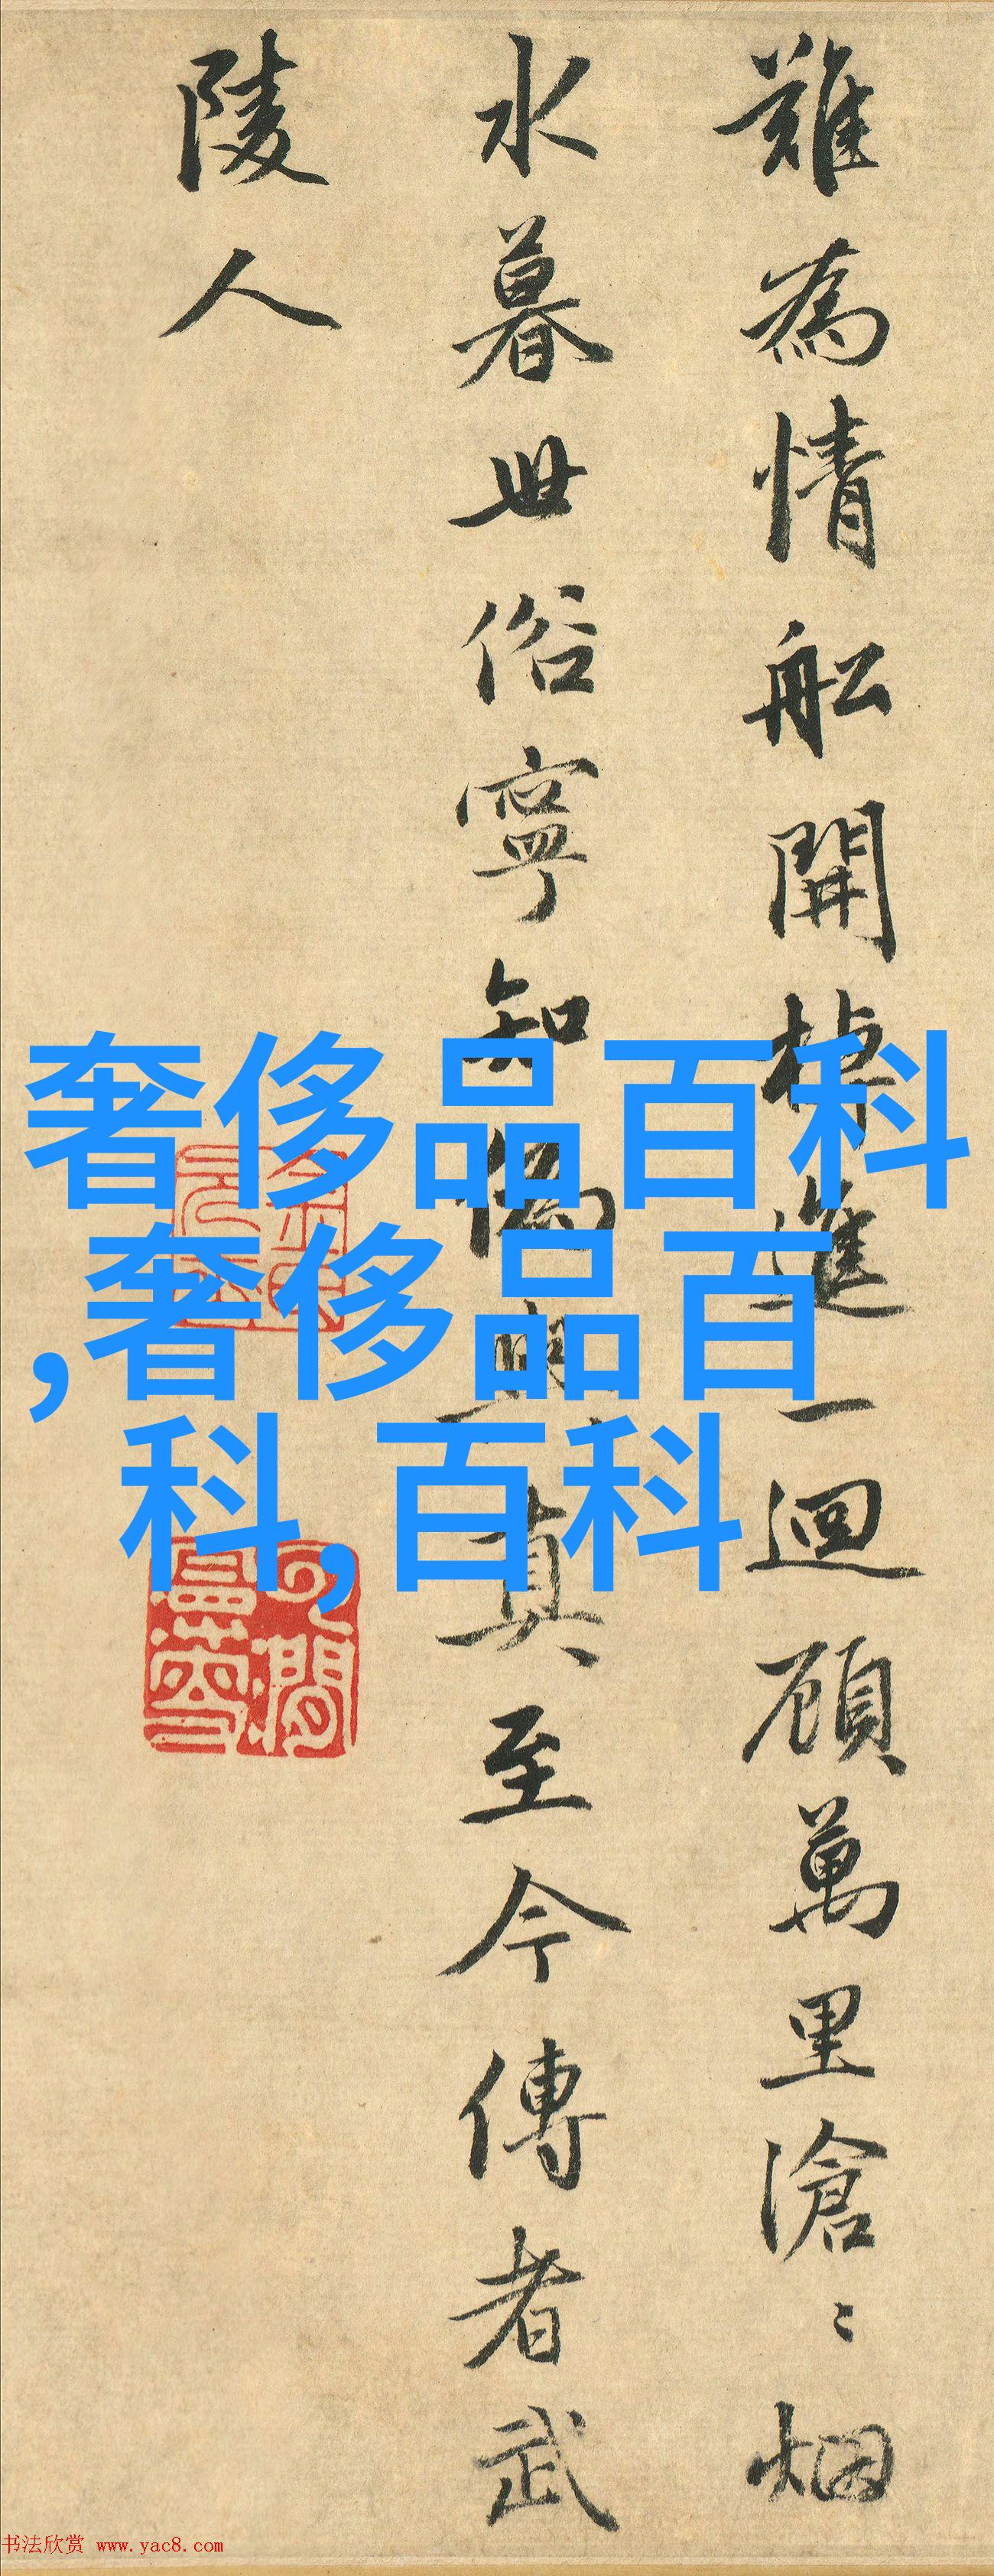 難為情船開棹進一迴顧萬里滄〻烟
水暮世俗寧知偽與真至今傳者武
陵人
奢侈品百科
,奢侈品百
科,百科
书法欣赏 www.yac8.com